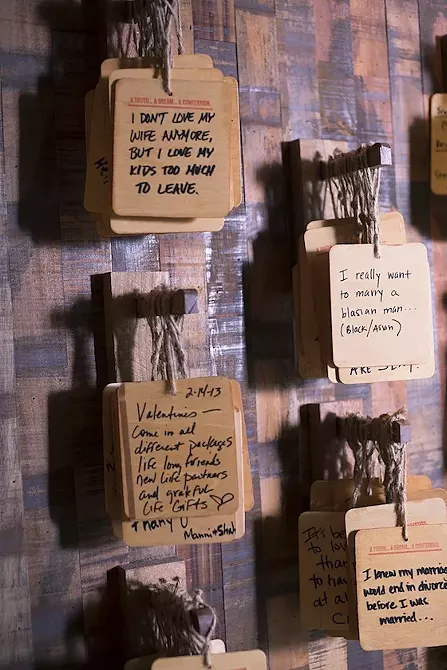 A TRUTH... A DREAM... A CONFESSION
I DON'T LOVE MY
WIFE ANYMORE,
BUT I LOVE MY
KIDS TOO MUCH
TO LEAVE.
I really want
to marry a
blasian man...
(Black/Asian)
ARE
2-14-13
Valentines —
Come in all
different packages
life long friends
new life partners
and grateful
Life Gifts ♡
Thank U
It's be
to lov
than
to ha
at al
A TRUTH... A DREAM... A CONFESSION
I knew my marriage
would end in divorce
before I was
married...